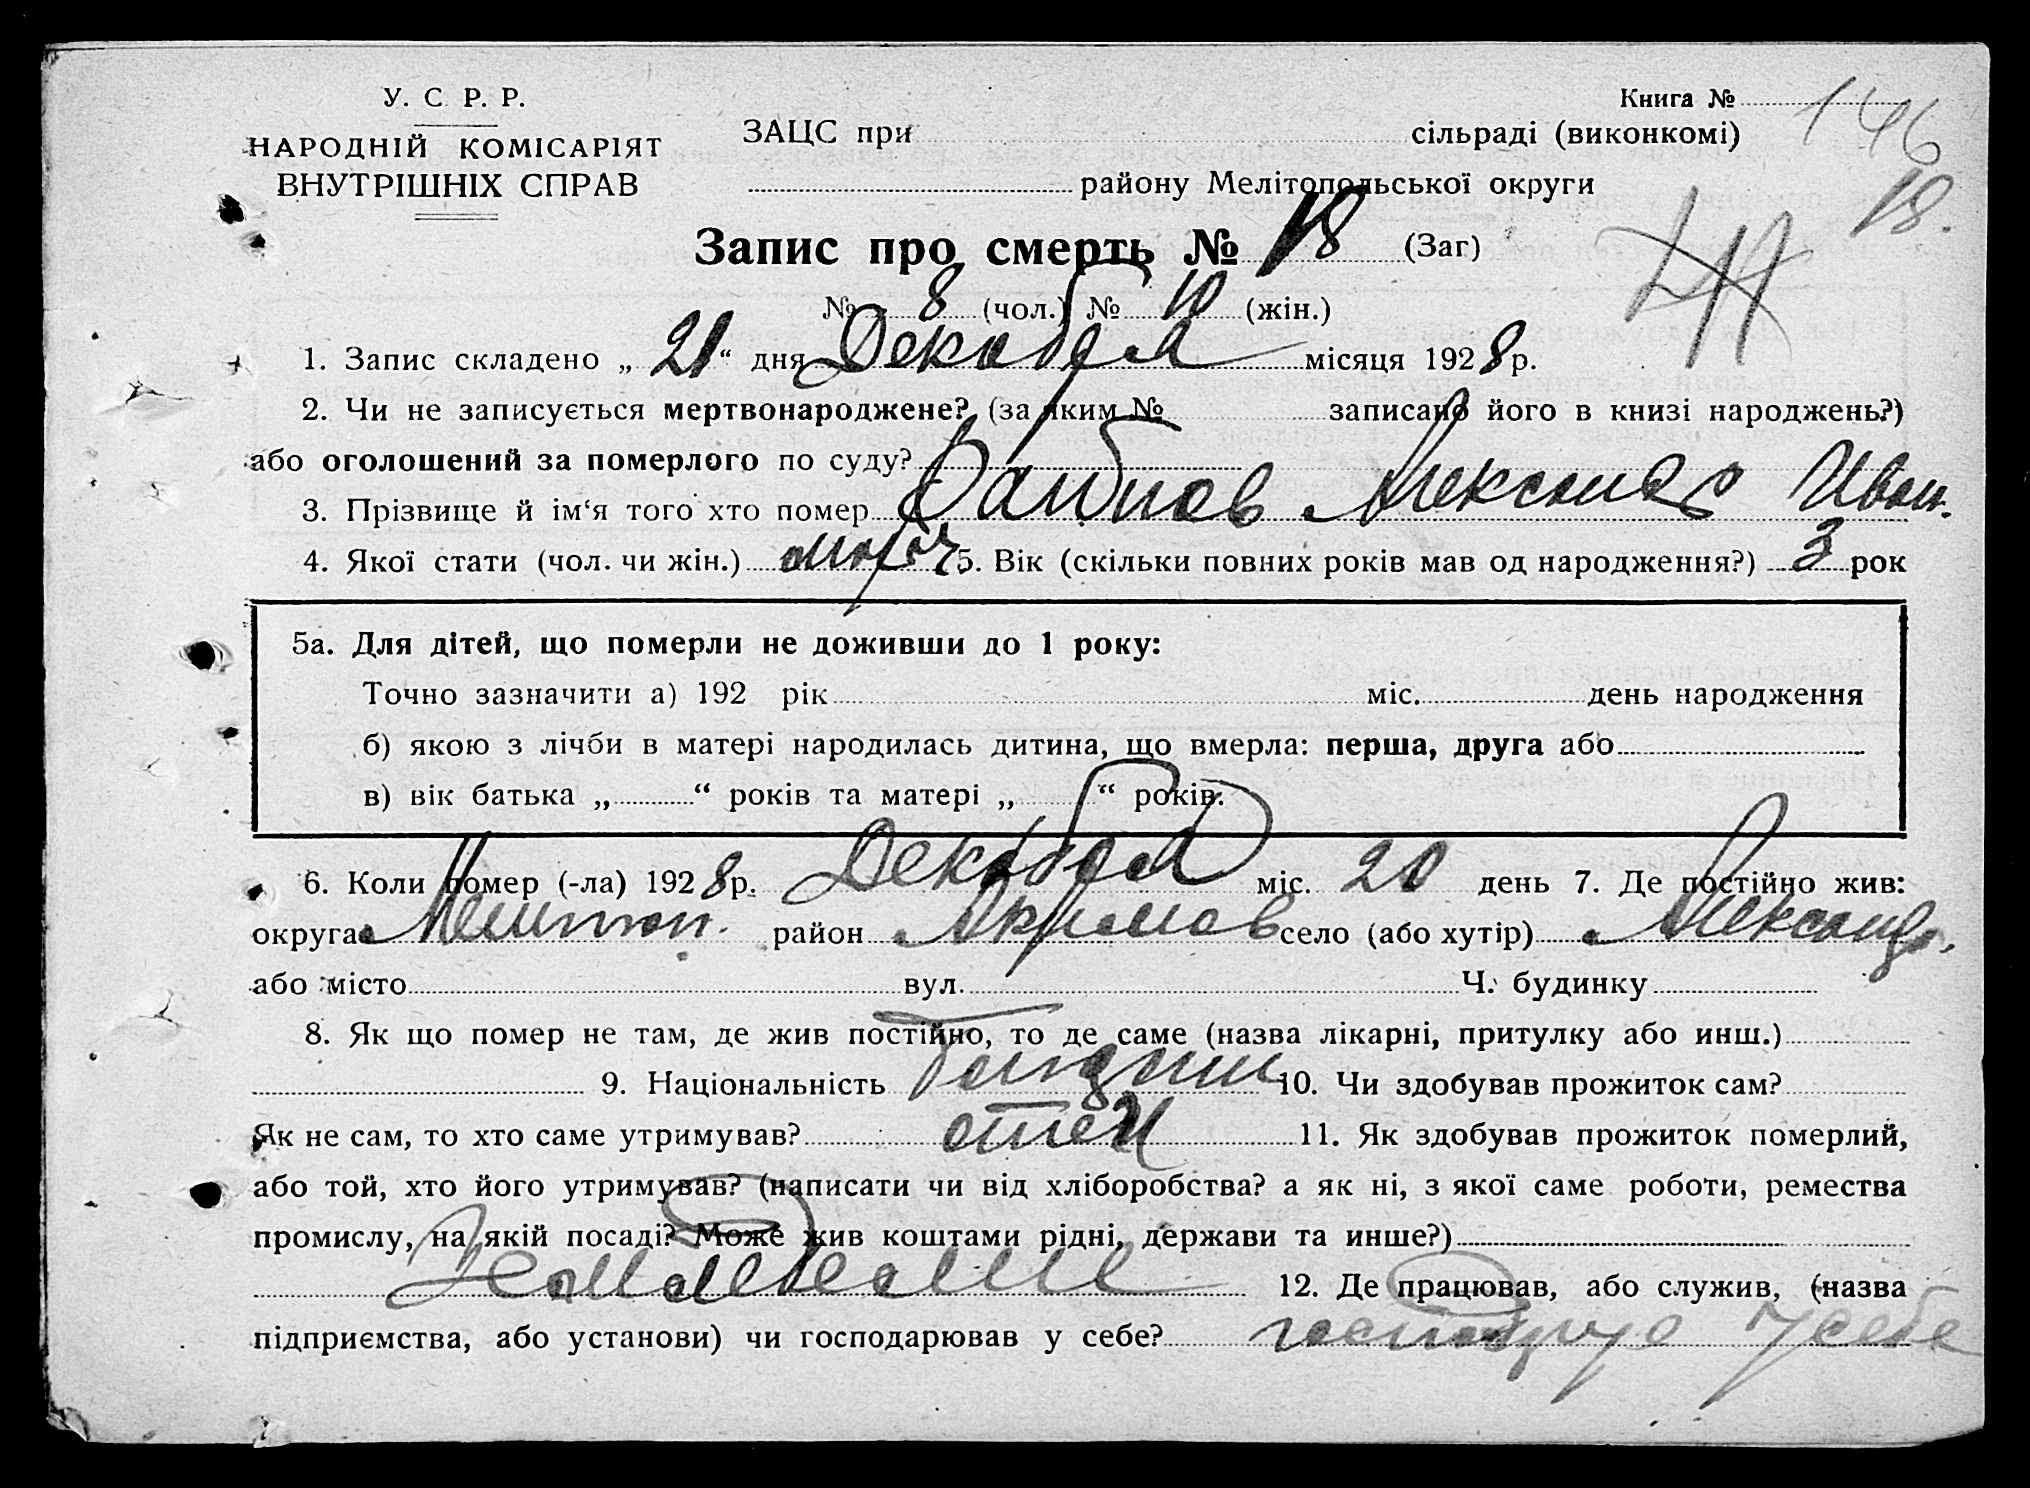 У. С. Р. Р.
НАРОДНІЙ КОМІСАРІЯТ
ВНУТРІШНІХ СПРАВ
Книга №
146
ЗАЦС при сільраді (виконкомі)
району Мелітопольської округи
18.
Запис про смерть № 18 (Заг)
№ 8 (чол.) № 10 (жін.)
1. Запис складено „ 21 “ дня Декабря місяця 1928 р.
2. Чи не записується мертвонароджене? (за яким № записано його в книзі народжень?)
або оголошений за померлого по суду?
3. Прізвище й ім‘я того хто помер Александр Иван.
4. Якої стати (чол. чи жін.) 5. Вік (скільки повних років мав од народження?) 3 рок
5а. Для дітей, що померли не доживши до 1 року:
Точно зазначити а) 192 рік міс. день народження
б) якою з лічби в матері народилась дитина, що вмерла: перша, друга або
в) вік батька „ “ років та матері „ “ років.
6. Коли помер (-ла) 1928 р. Декабря міс. 20 день 7. Де постійно жив:
округа Мелитоп. район Акимов село (або хутір)
або місто вул. Ч. будинку
8. Як що помер не там, де жив постійно, то де саме (назва лікарні, притулку або инш.)
9. Національність 10. Чи здобував прожиток сам?
Як не сам, то хто саме утримував? отец 11. Як здобував прожиток померлий,
або той, хто його утримував? (написати чи від хліборобства? а як ні, з якої саме роботи, ремества
промислу, на якій посаді? Може жив коштами рідні, держави та инше?)
12. Де працював, або служив, (назва
підприємства, або установи) чи господарював у себе? у себе